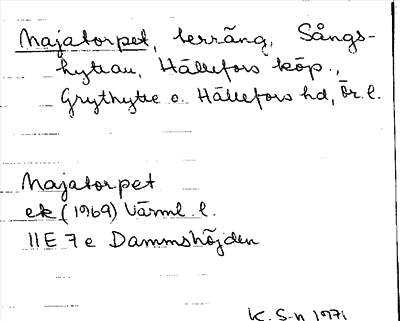 Majatorpet, terräng, Sångs-
hyttan, Hällefors köp.,
Grythytte o. Hällefors hd, Ör. l.
Majatorpet
ek (1969) Värml. l.
11E 7e Dammshöjden
K. S-n 1971